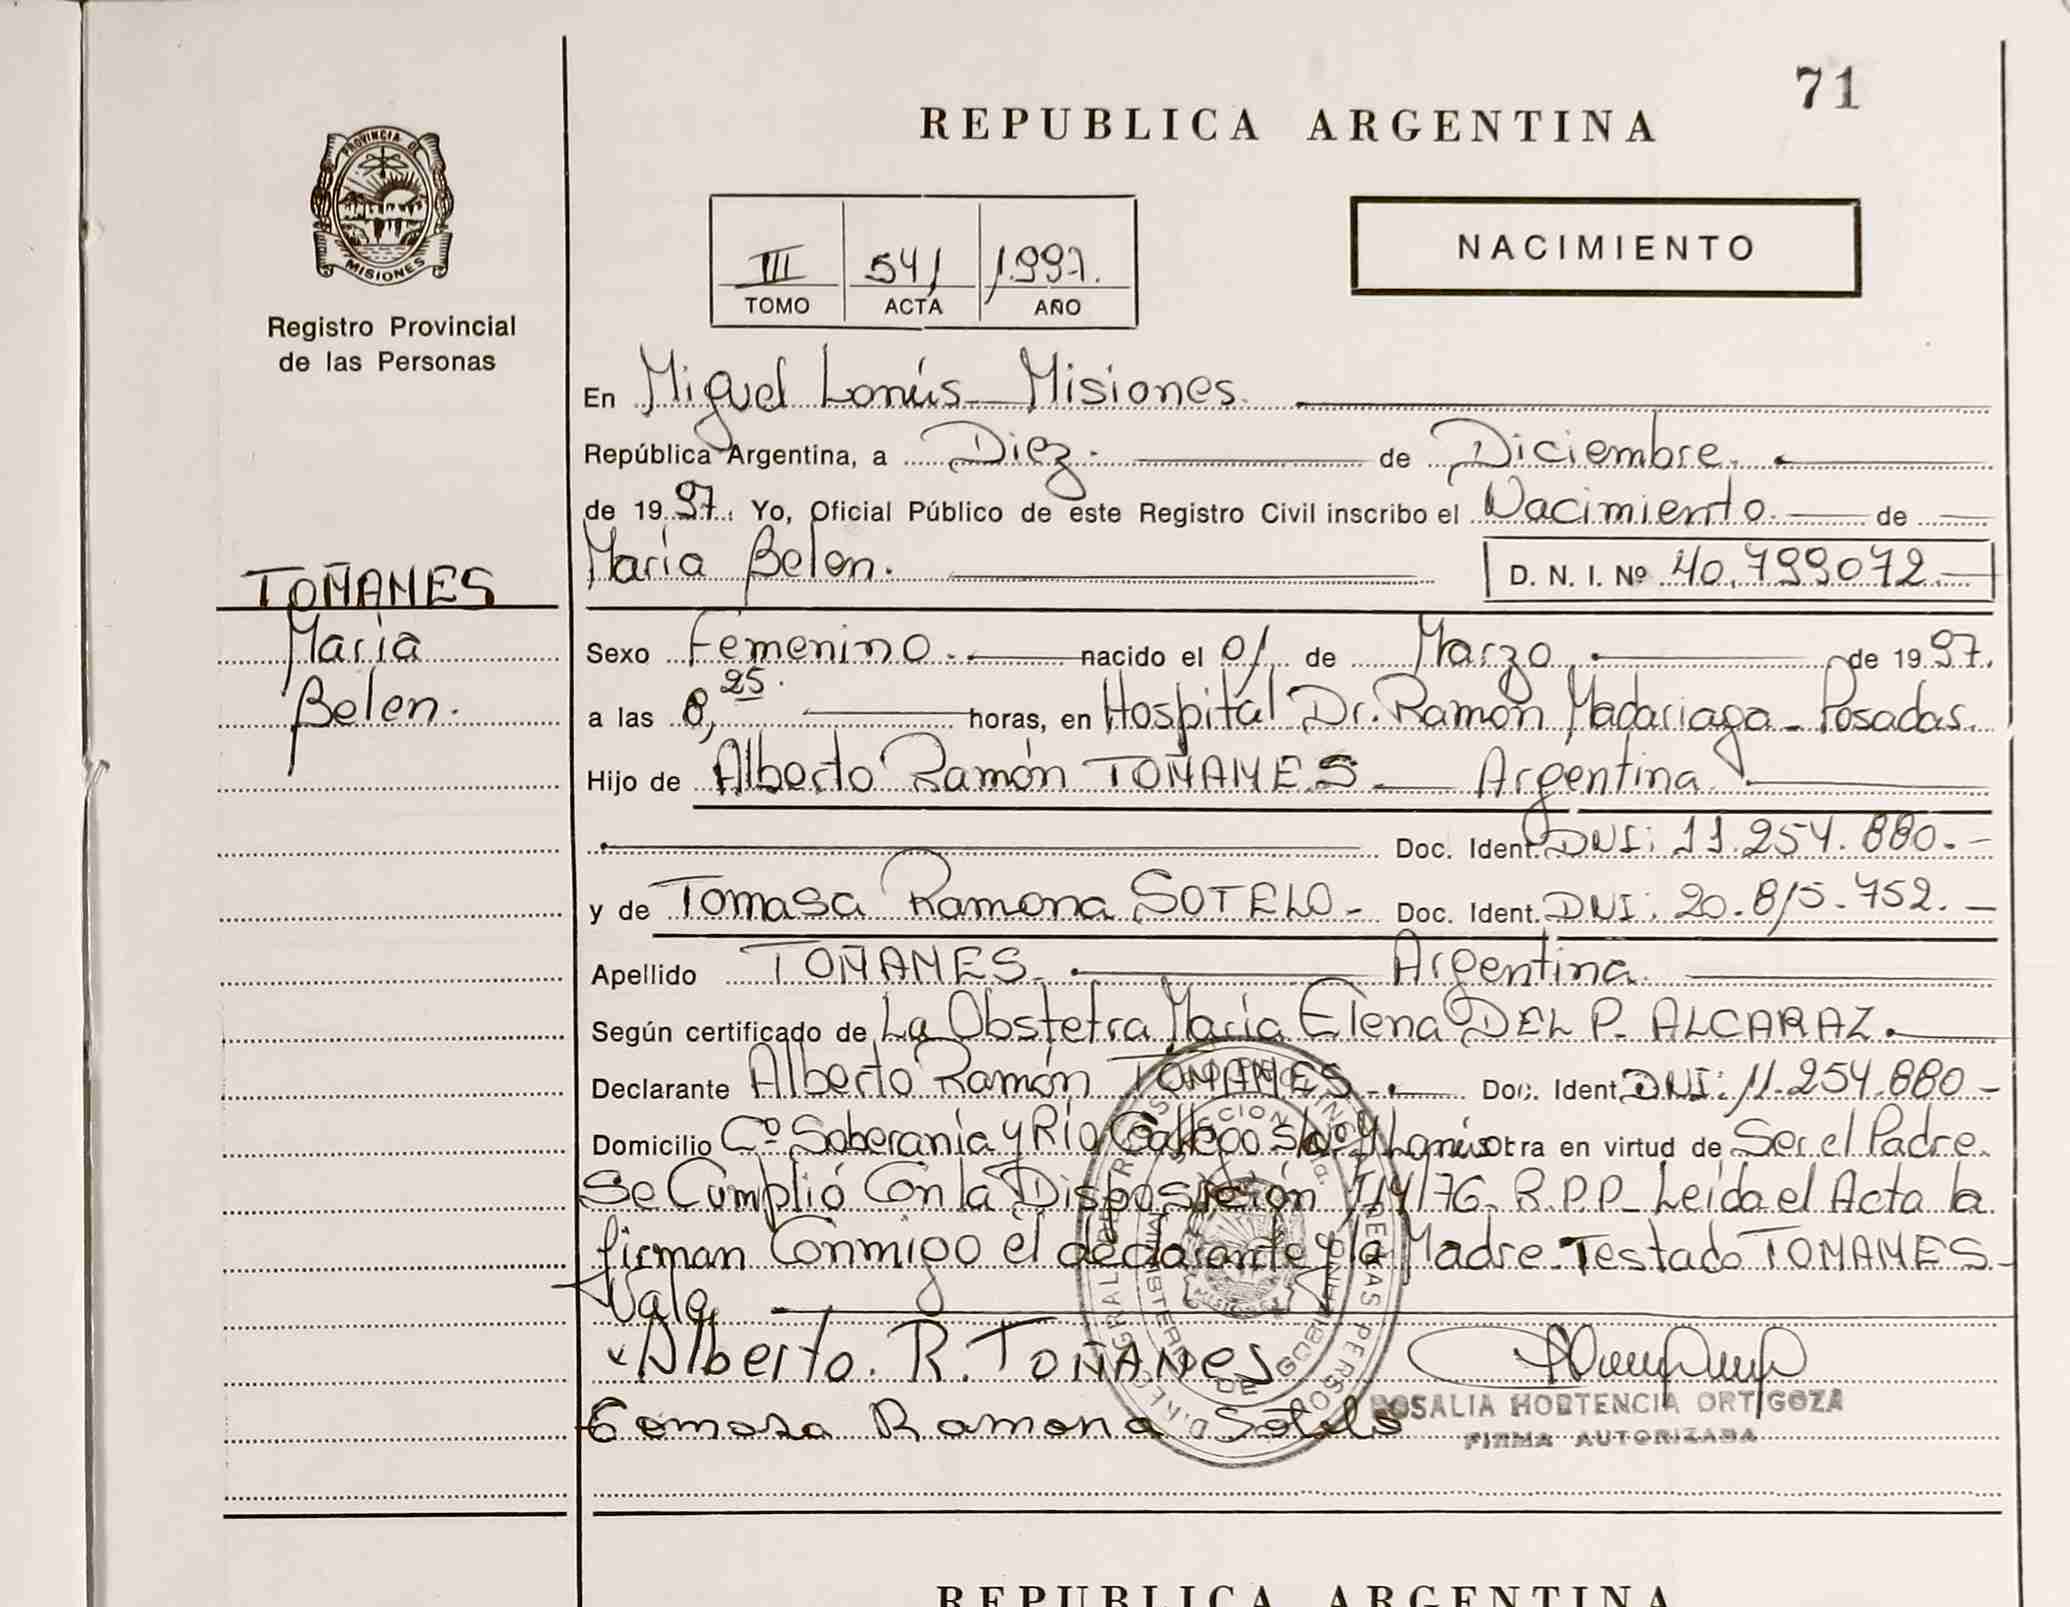 71
REPUBLICA ARGENTINA
PROVINCIA DE
MISIONES
Registro Provincial
de las Personas
III 541 1.997.
TOMO ACTA AÑO
NACIMIENTO
En Miguel Lanús - Misiones.
República Argentina, a Diez. de Diciembre.
de 1997. Yo, Oficial Público de este Registro Civil inscribo el Nacimiento de
Maria Belen. D. N. I. Nº 40.799072.-
TOÑANES
Maria
Belen.
Sexo Femenino. nacido el 01 de Marzo. de 1997.
a las 8,25. horas, en Hospital Dr. Ramón Madariaga - Posadas.
Hijo de Alberto Ramón TOÑANES. Argentina
Doc. Ident. DNI: 11.254.880.-
y de Tomasa Ramona SOTELO - Doc. Ident. DNI: 20.815.752.-
Apellido TOÑANES. Argentina.
Según certificado de La Obstetra María Elena DEL P. ALCARAZ.
Declarante Alberto Ramón TOÑANES. Doc. Ident. DNI: 11.254.880-
Domicilio Cº Soberanía y Río Gallego S/nº M. Lanús otra en virtud de Ser el Padre.
Se Cumplió Con la Disposición 114/76. R.P.P. Leída el Acta la
firman Conmigo el declarante y la Madre. Testado TOÑANES-
Vale
Alberto. R. TOÑANES
Tomasa Ramona Sotelo
ROSALIA HORTENCIA ORTIGOZA
FIRMA AUTORIZADA
REPUBLICA ARGENTINA